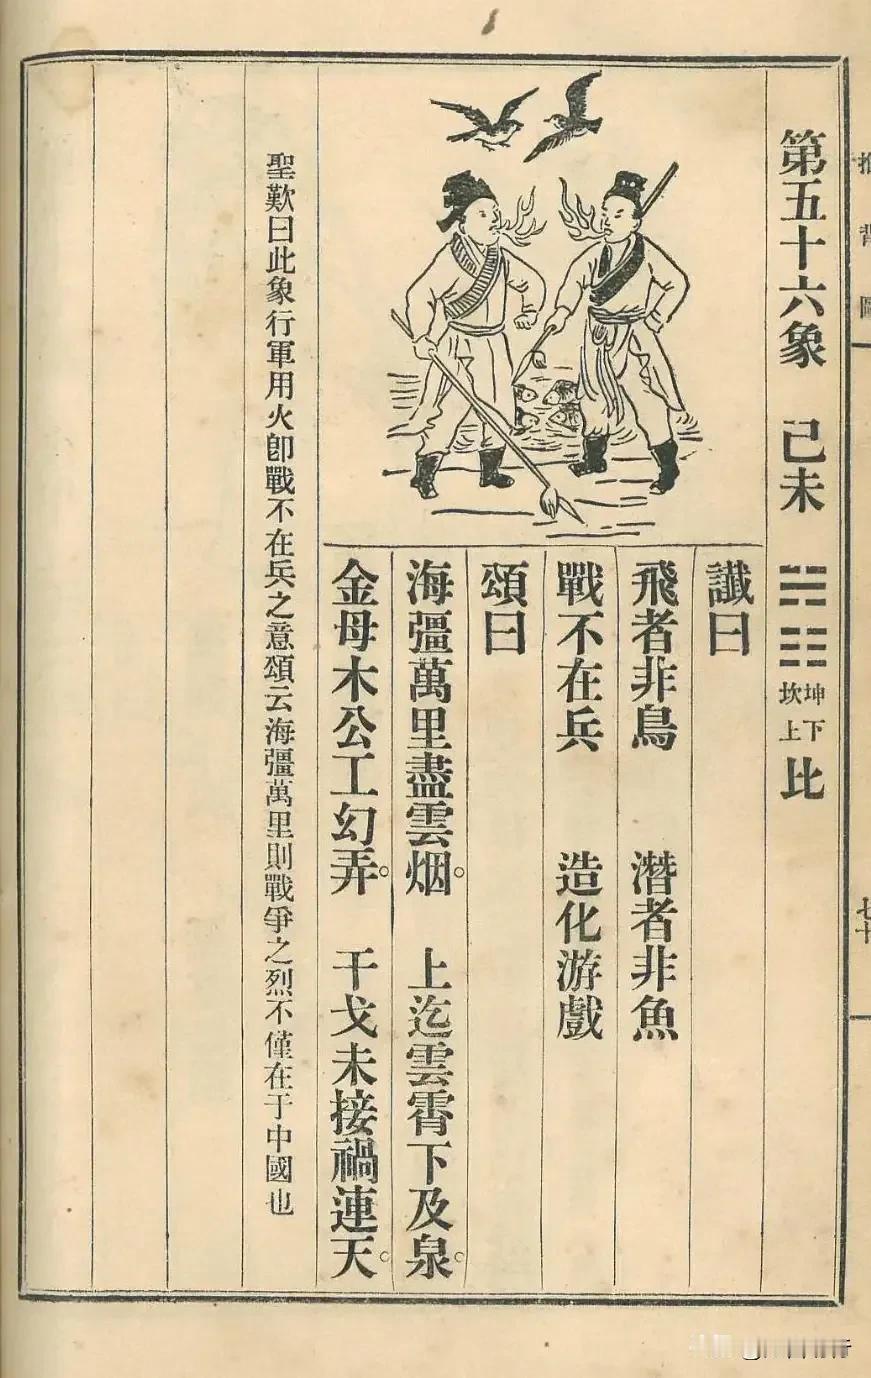 推背圖
七十
第五十六象 己未 坤下坎上 比
讖曰
飛者非鳥 潛者非魚
戰不在兵 造化游戲
頌曰
海疆萬里盡雲烟。 上迄雲霄下及泉。
金母木公工幻弄。 干戈未接禍連天。
聖歎曰此象行軍用火即戰不在兵之意頌云海疆萬里則戰爭之烈不僅在于中國也